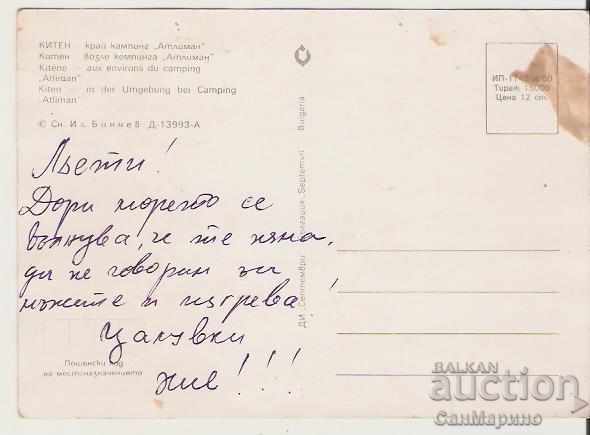 КИТЕН — край кампинг „Атлиман"
Китен — возле кемпинга „Атлиман"
Kitene — aux environs du camping
„Atliman"
Kiten — in der Umgebung bei Camping
„Atliman"
© Сн. Ил. Бончев Д-13993-А
ДИ „Септември" Septemvri Bulgaria
Тираж 15000
Цена 12 ст.
Льети!
Дори морето се
вълнува, че те няма,
да не говорим за
мъжете и изгрева!
Целувки
ние!!!
Пощенски код
на местоназначението
BALKAN
auction
СанМарино